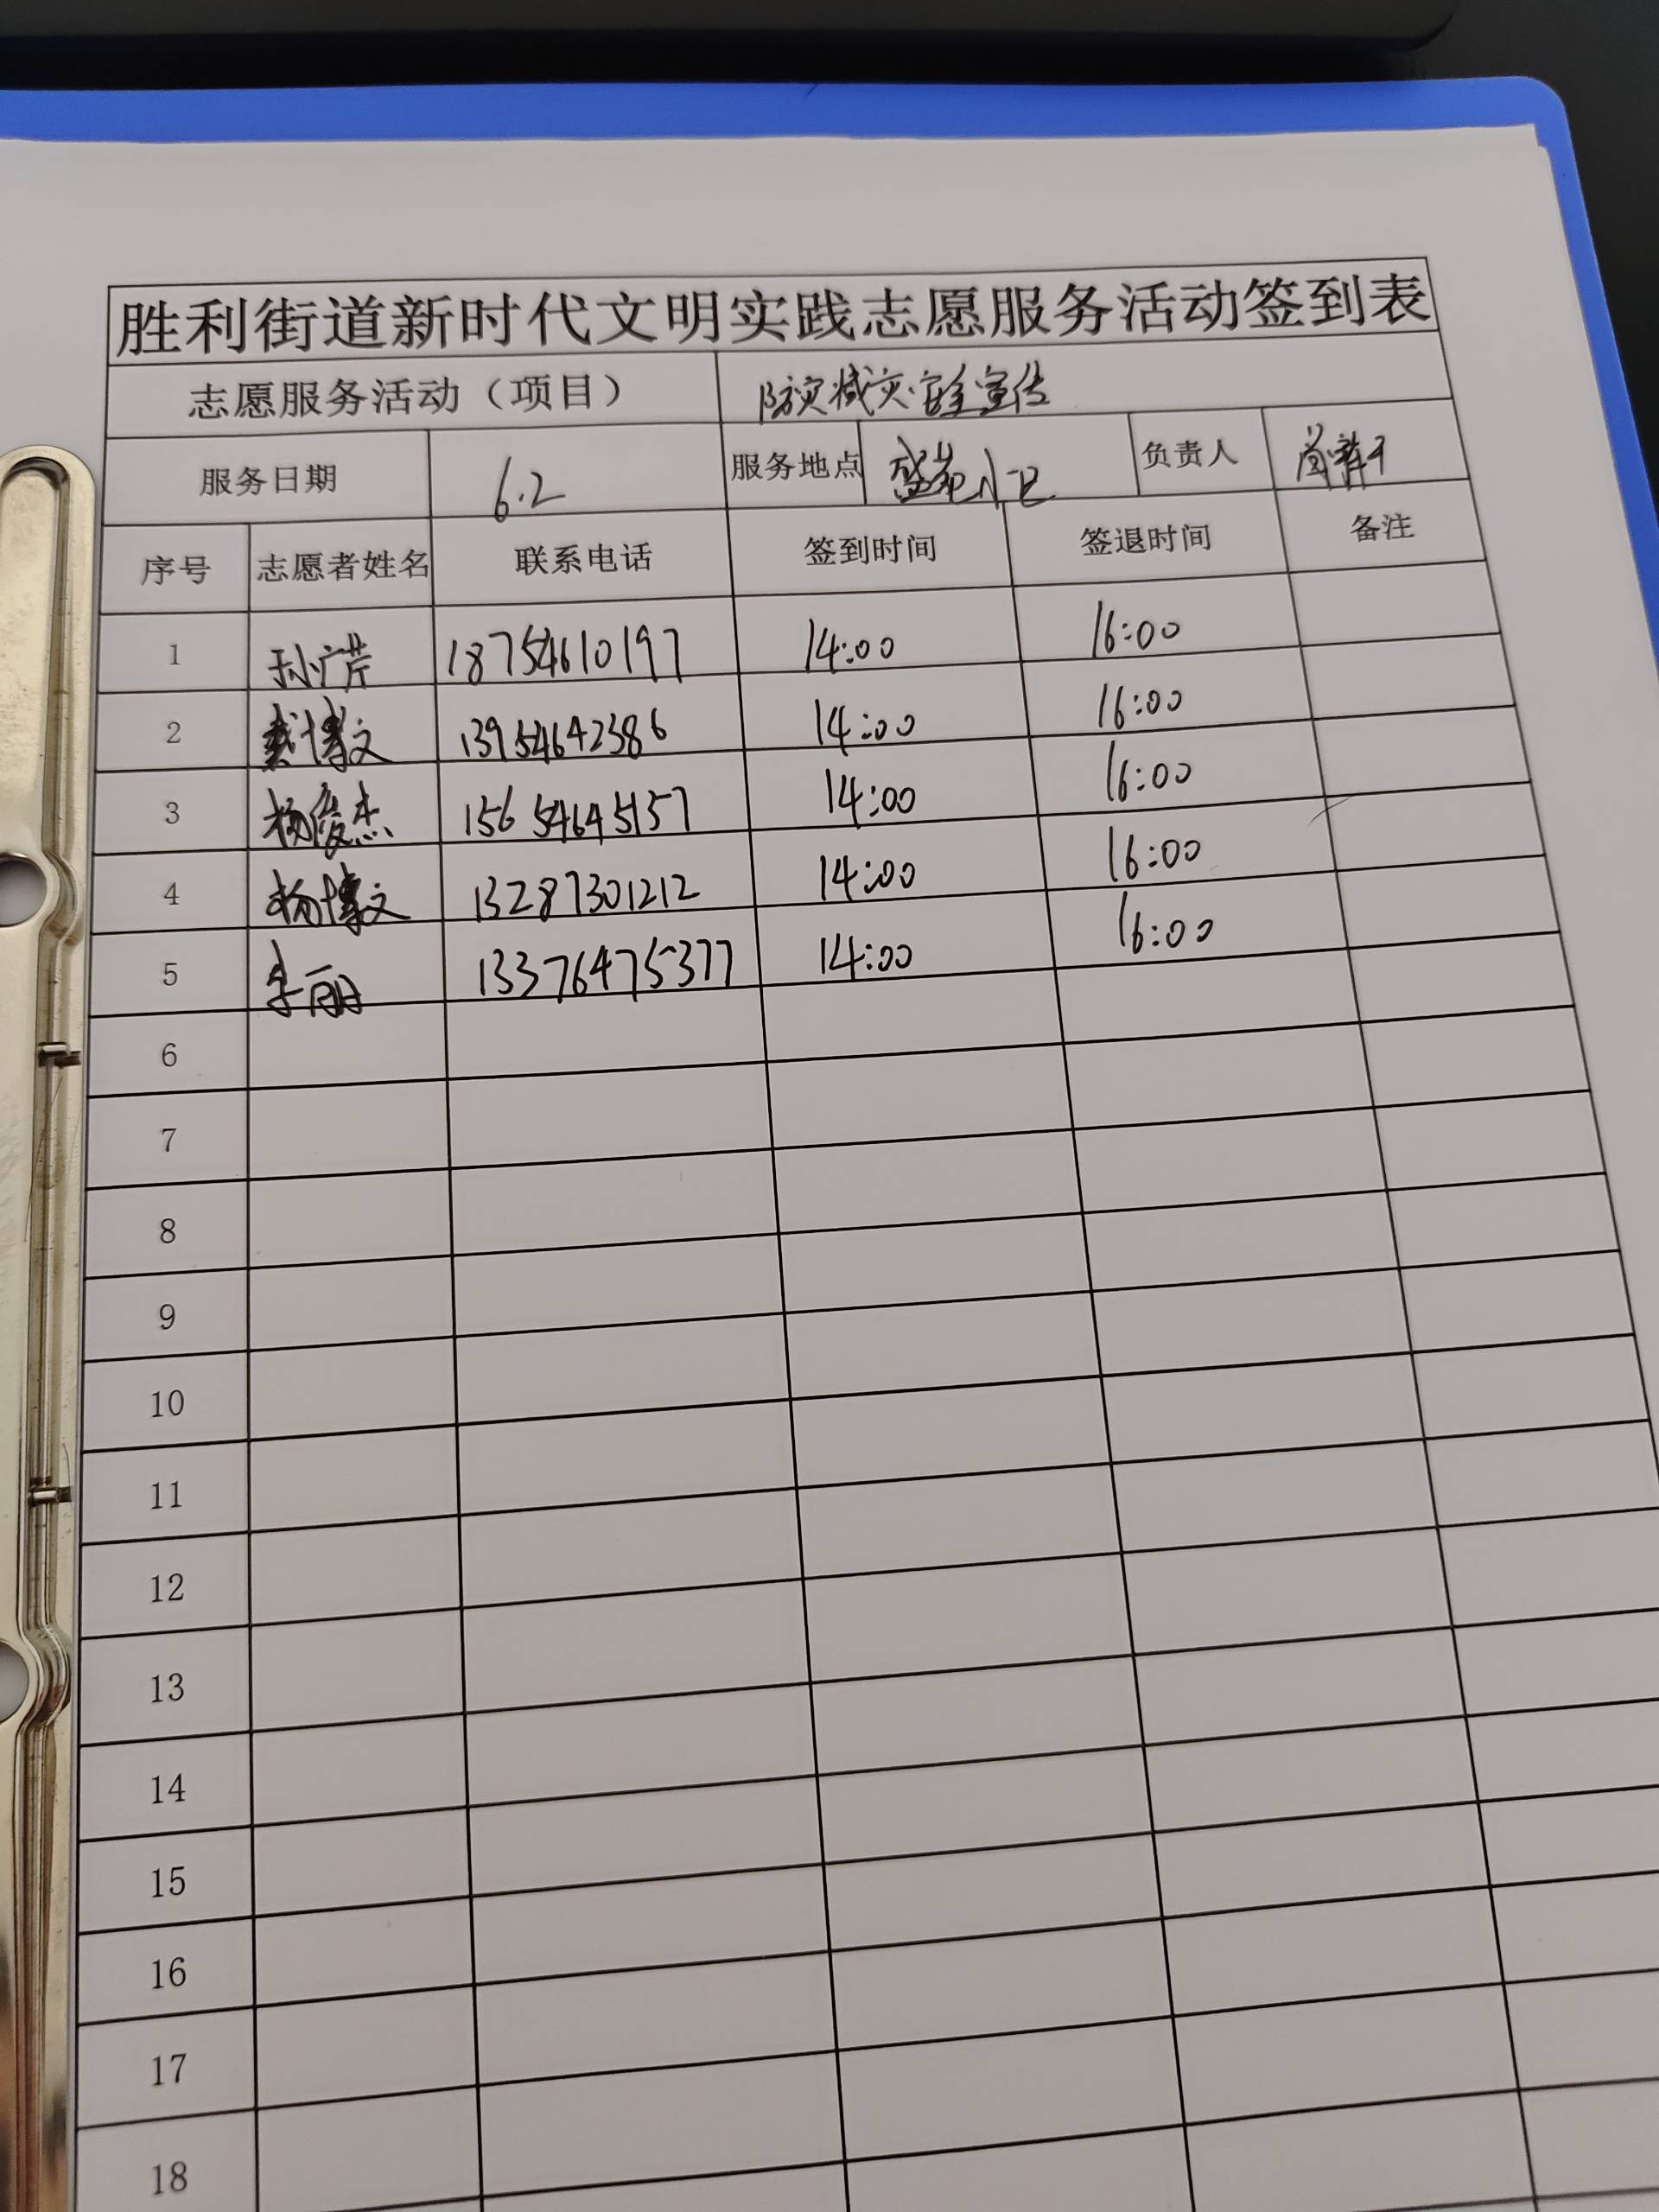 胜利街道新时代文明实践志愿服务活动签到表
志愿服务活动（项目） 防灾减灾安全宣传
服务日期 6.2 服务地点 盛苑小区 负责人
序号 志愿者姓名 联系电话 签到时间 签退时间 备注
1 孙广芹 18754610197 14:00 16:00
2 戴博文 13954642386 14:00 16:00
3 杨俊杰 15654645157 14:00 16:00
4 杨博文 13287301212 14:00 16:00
5 李丽 13376475377 14:00 16:00
6
7
8
9
10
11
12
13
14
15
16
17
18